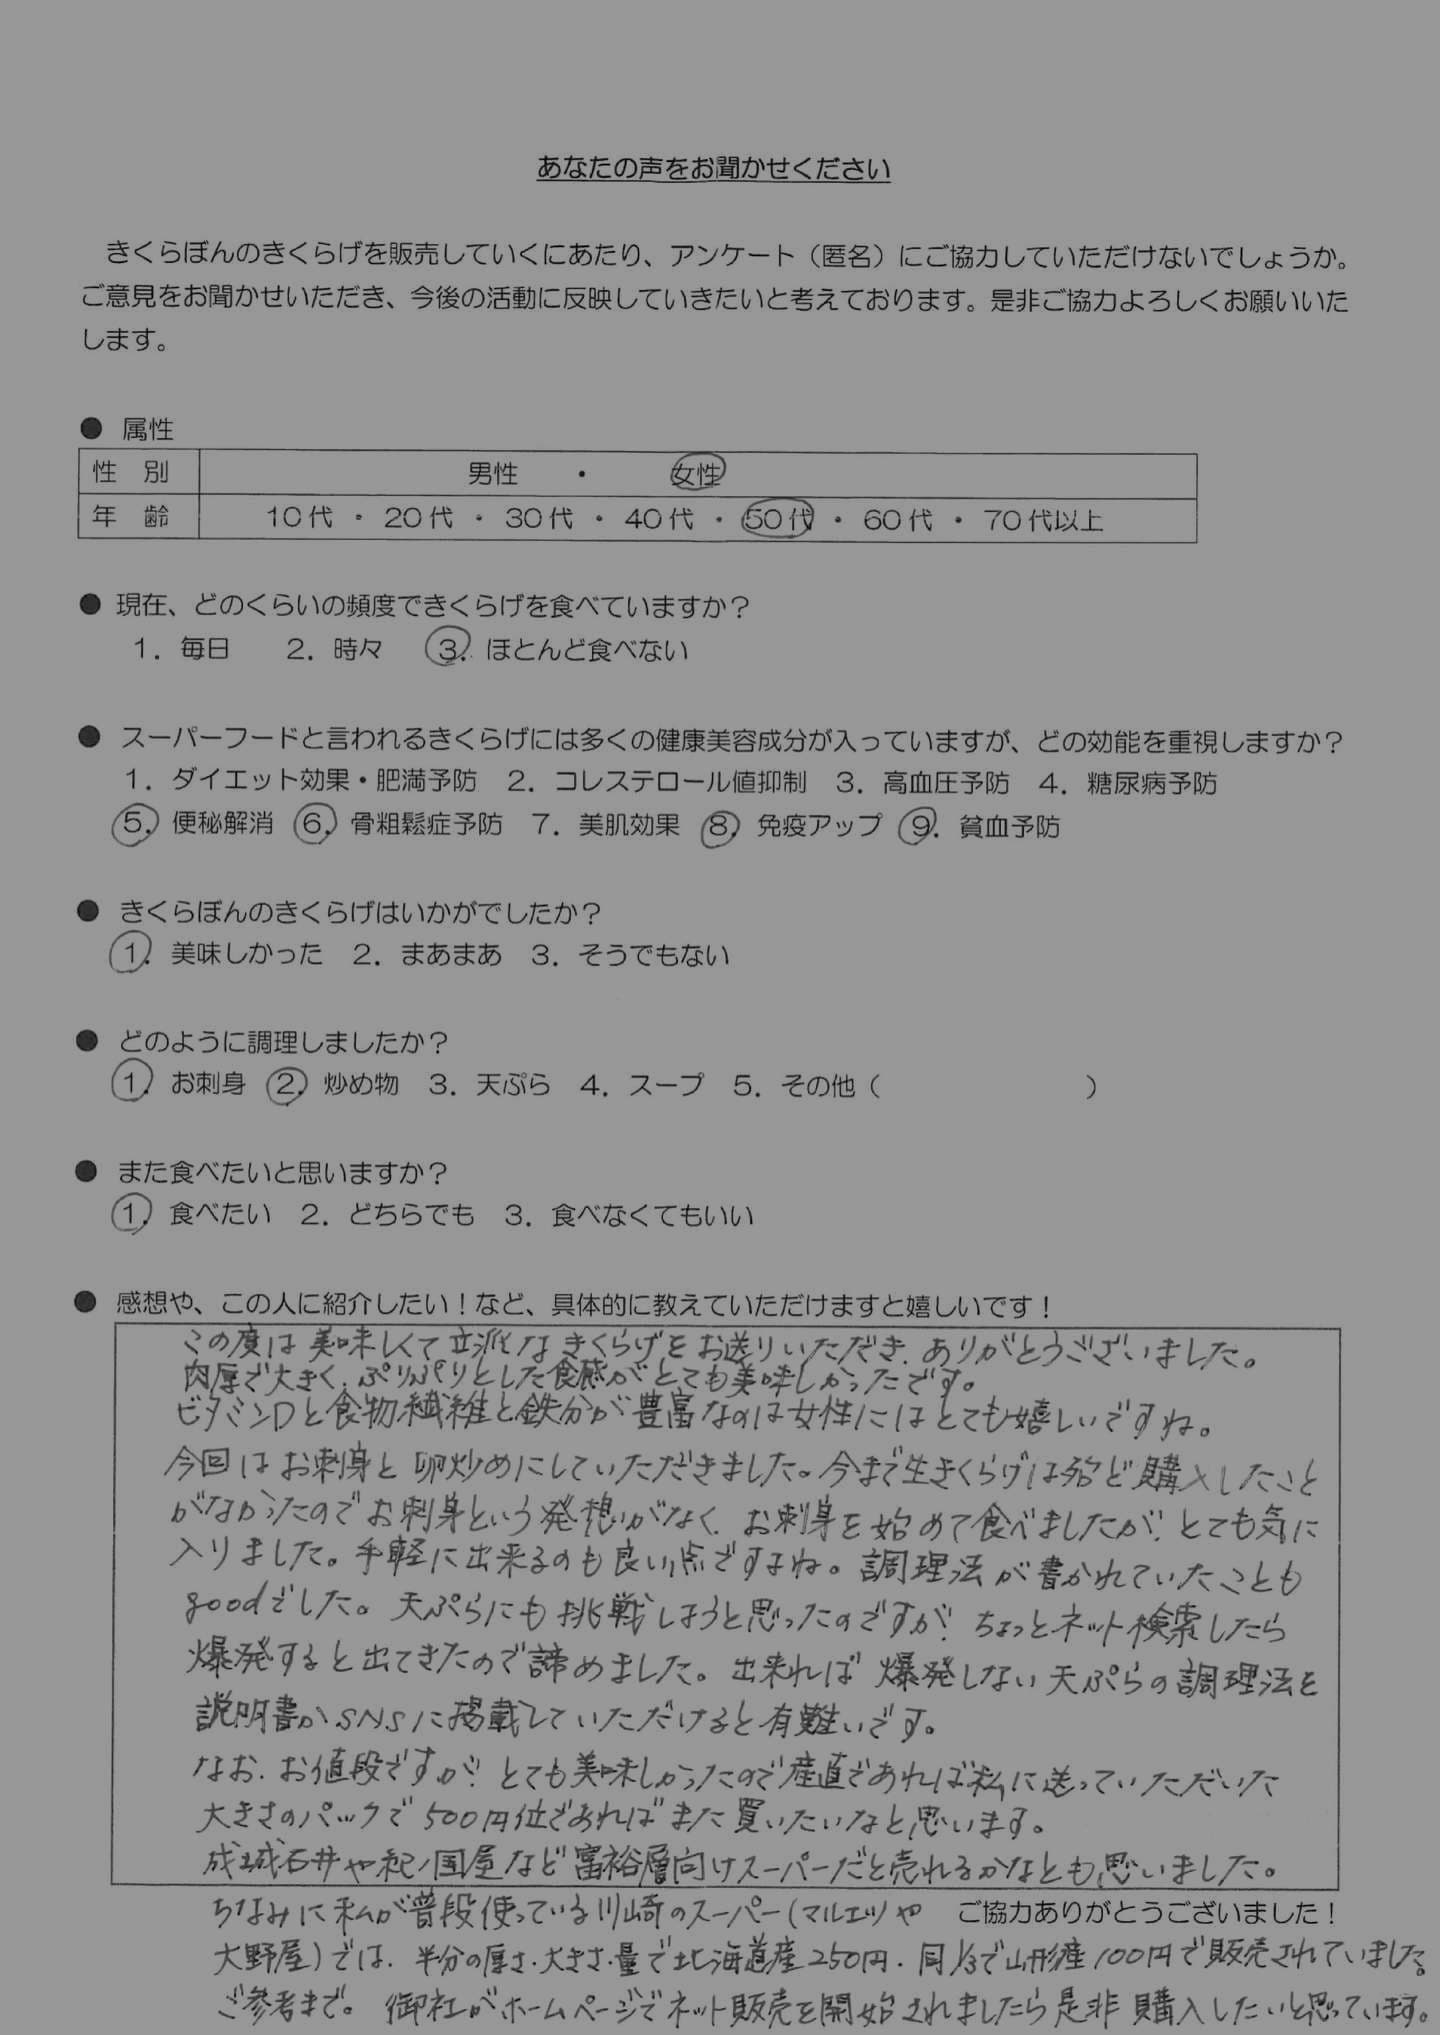 あなたの声をお聞かせください
きくらぼんのきくらげを販売していくにあたり、アンケート（匿名）にご協力していただけないでしょうか。
ご意見をお聞かせいただき、今後の活動に反映していきたいと考えております。是非ご協力よろしくお願いいた
します。
● 属性
性 別 男性 ・ 女性
年 齢 10代 ・ 20代 ・ 30代 ・ 40代 ・ 50代 ・ 60代 ・ 70代以上
● 現在、どのくらいの頻度できくらげを食べていますか？
1．毎日 2．時々 3．ほとんど食べない
● スーパーフードと言われるきくらげには多くの健康美容成分が入っていますが、どの効能を重視しますか？
1．ダイエット効果・肥満予防 2．コレステロール値抑制 3．高血圧予防 4．糖尿病予防
5．便秘解消 6．骨粗鬆症予防 7．美肌効果 8．免疫アップ 9．貧血予防
● きくらぼんのきくらげはいかがでしたか？
1．美味しかった 2．まあまあ 3．そうでもない
● どのように調理しましたか？
1．お刺身 2．炒め物 3．天ぷら 4．スープ 5．その他（ ）
● また食べたいと思いますか？
1．食べたい 2．どちらでも 3．食べなくてもいい
● 感想や、この人に紹介したい！など、具体的に教えていただけますと嬉しいです！
この度は美味しくて立派なきくらげをお送りいただき、ありがとうございました。
肉厚で大きく、ぷりぷりとした食感がとても美味しかったです。
ビタミンDと食物繊維と鉄分が豊富なのは女性にはとても嬉しいですね。
今回はお刺身と卵炒めにしていただきました。今まで生きくらげは殆ど購入したこと
がなかったのでお刺身という発想がなく、お刺身を始めて食べましたが、とても気に
入りました。手軽に出来るのも良い点ですよね。調理法が書かれていたことも
goodでした。天ぷらにも挑戦しようと思ったのですが、ちょっとネット検索したら
爆発すると出てきたので諦めました。出来れば爆発しない天ぷらの調理法を
説明書かSNSに掲載していただけると有難いです。
なお、お値段ですが、とても美味しかったので産直であれば私に送っていただいた
大きさのパックで500円位であればまた買いたいなと思います。
成城石井や紀ノ国屋など富裕層向けスーパーだと売れるかなとも思いました。
ちなみに私が普段使っている川崎のスーパー（マルエツや
ご協力ありがとうございました！
大野屋）では、半分の厚さ・大きさ・量で北海道産250円、同1/3で山形産100円で販売されていました。
ご参考まで。御社がホームページでネット販売を開始されましたら是非購入したいと思っています。